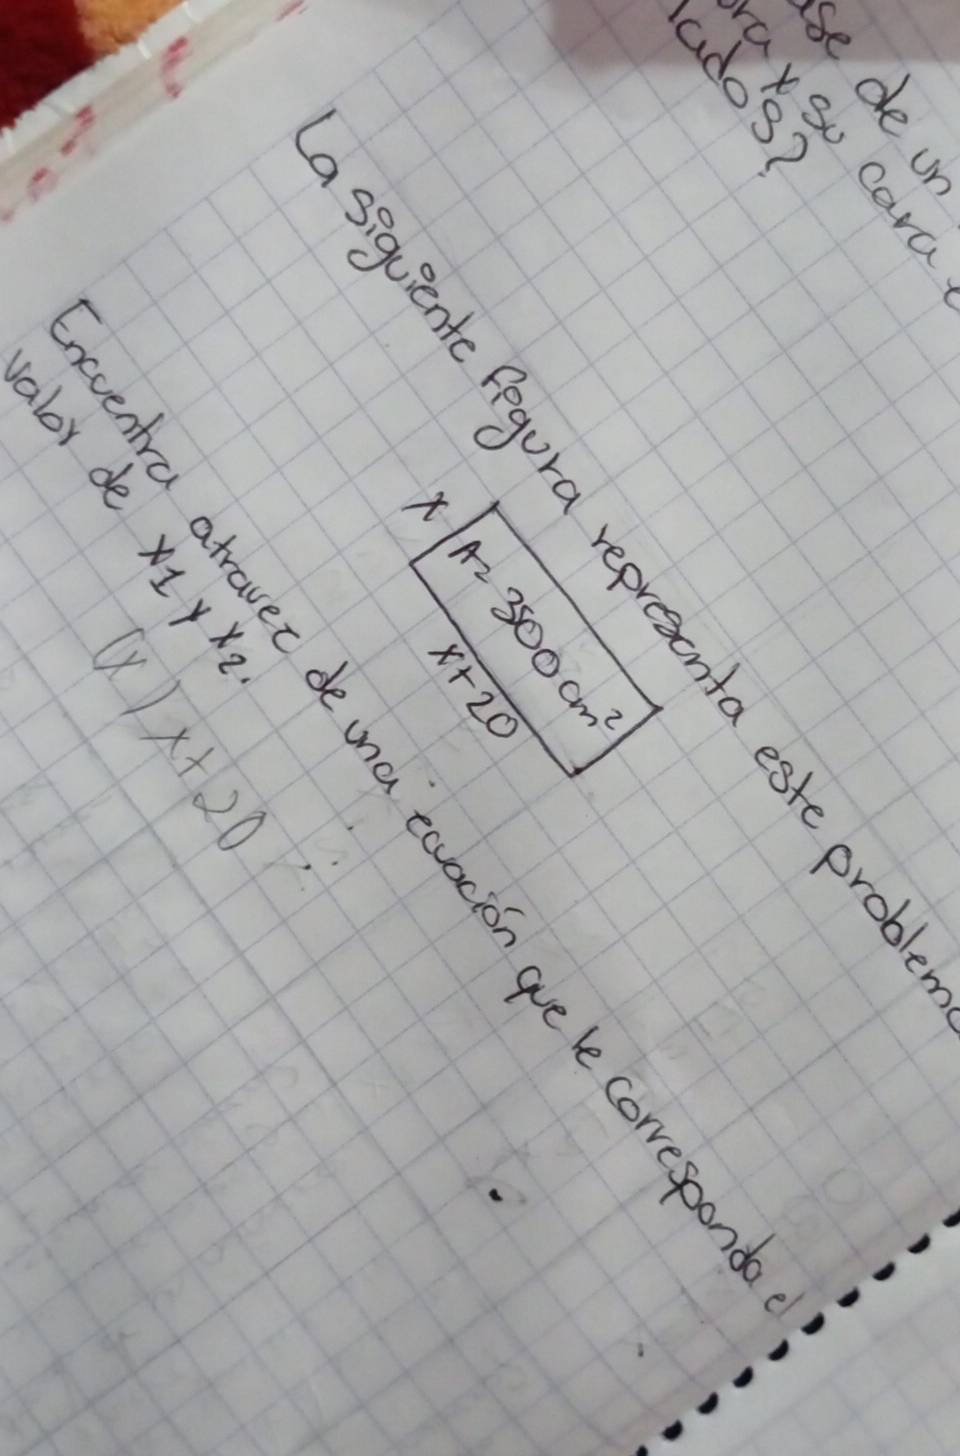 de un
su cara
lados?
La siguiente figura representa este problema
x
A= 3500cm²
x+20
Encuentra atravez de una ecuación que le corresponda el
valor de x1 y x2.
(x) x+20